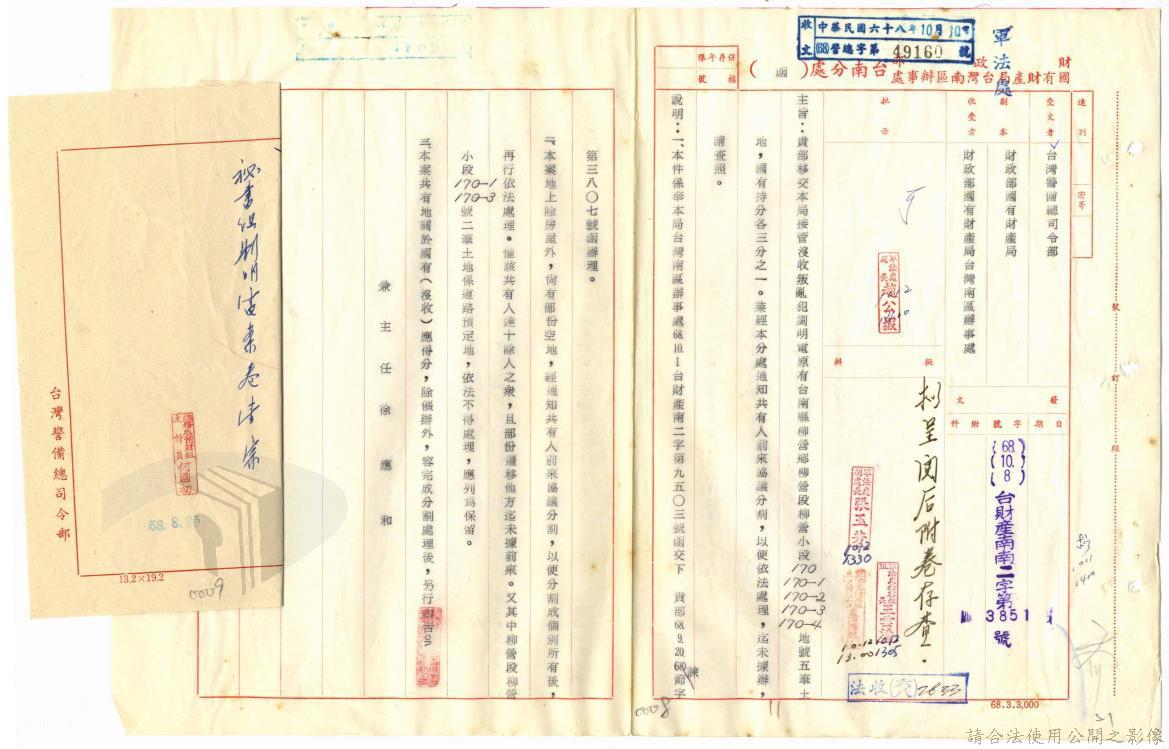 收文
中華民國六十八年10月10日
(68)警總字第49160號
軍法處
財政部
國有財產局台灣南區辦事處台南分處(函)
保存年限
檔號
速別
密等
受文者
台灣警備總司令部
副本
收受者
財政部國有財產局
財政部國有財產局台灣南區辦事處
發文
日期
字號
附件
(68.10.8)
台財產南南二字第3851號
批示
擬辦
擬呈閱后附卷存查.
主旨：貴部移交本局接管沒收叛亂犯劉明電原有台南縣柳營鄉柳營段柳營小段170 170-1 170-2 170-3 170-4地號五筆土
地，國有持分各三分之一。業經本分處通知共有人前來協議分割，以便依法處理，迄未據辦，
請查照。
說明：一、本件係奉本局台灣南區辦事處68.10.1台財產南二字第九五〇三號函交下　貴部68.9.20.(68)諫字
第三八〇七號函辦理。
二、本案地上除房屋外，尚有部份空地，經通知共有人前來協議分割，以便分割成個別所有後，
再行依法處理。惟該共有人達十餘人之衆，且部份遷移他方迄未據前來。又其中柳營段柳營
小段170-1 170-3號二筆土地係道路預定地，依法不得處理，應列為保留。
三、本案共有地關於國有（沒收）應得分，除催辦外，容完成分割處理後，另行
兼主任徐應和
法收(六)2633
68.3.3,000
0008
訂
線
號
台灣警備總司令部
13.2×19.2
0009
請合法使用公開之影像